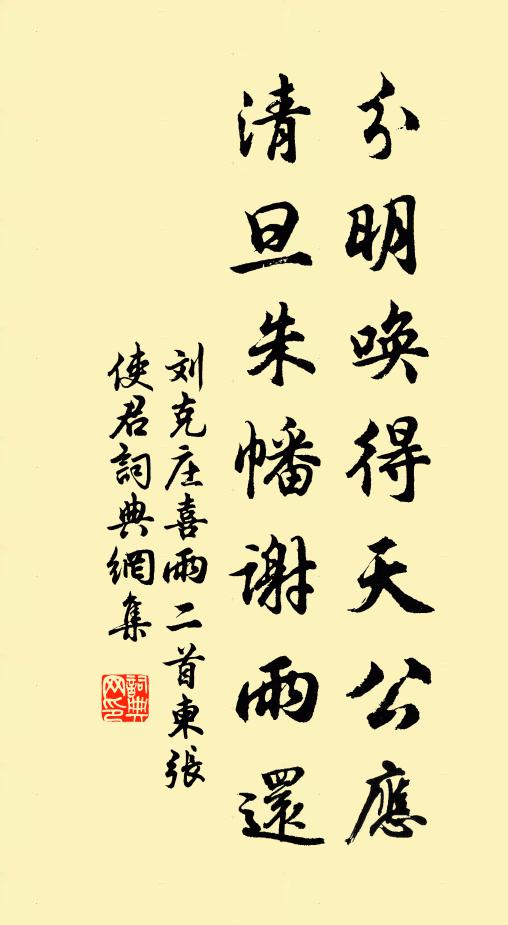 分明唤得天公應
清旦朱幡谢雨還
刘克庄喜雨二首東張
使君詞典網集
詞典网印